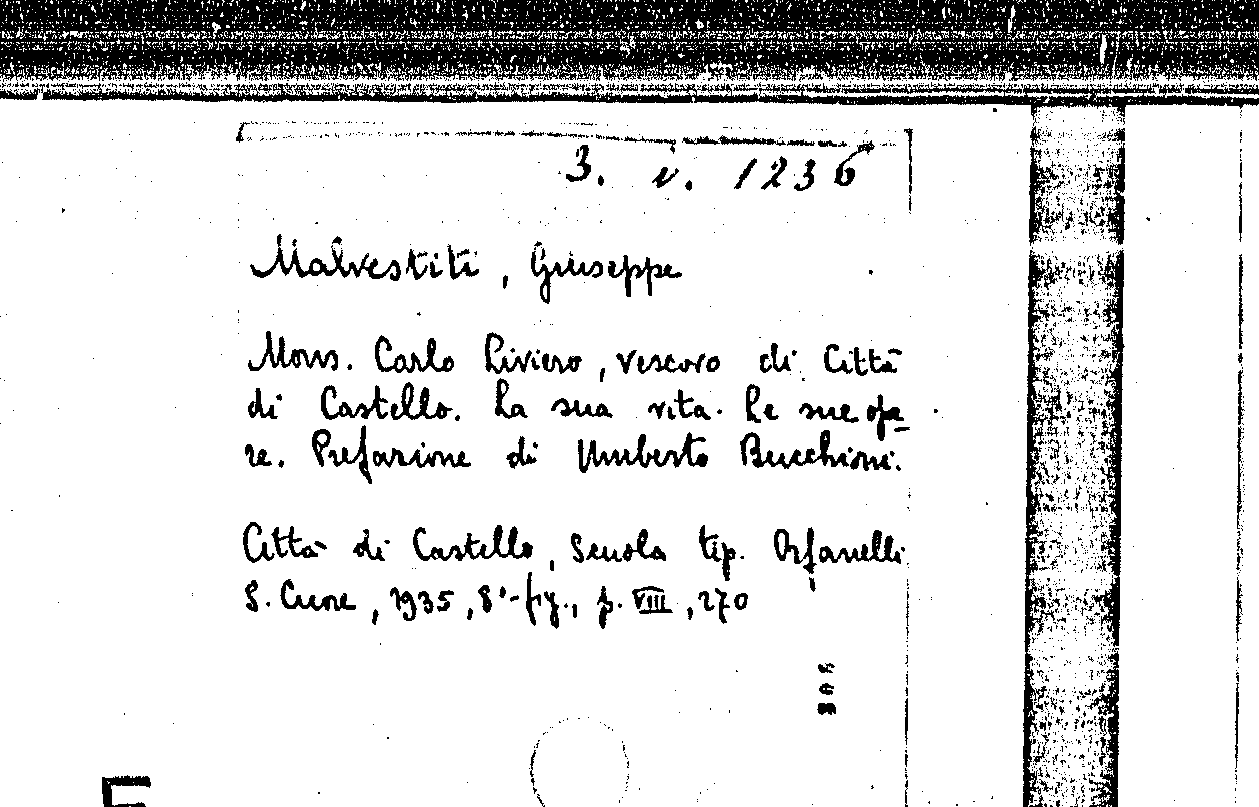 3. i. 1236
Malvestiti, Giuseppe
Mons. Carlo Liviero, vescovo di Città
di Castello. La sua vita. Le sue ope
re. Prefazione di Umberto Bucchioni.
Città di Castello, Scuola tip. Orfanelli
S. Cuore, 1935, 8°-fig., p. VIII, 270